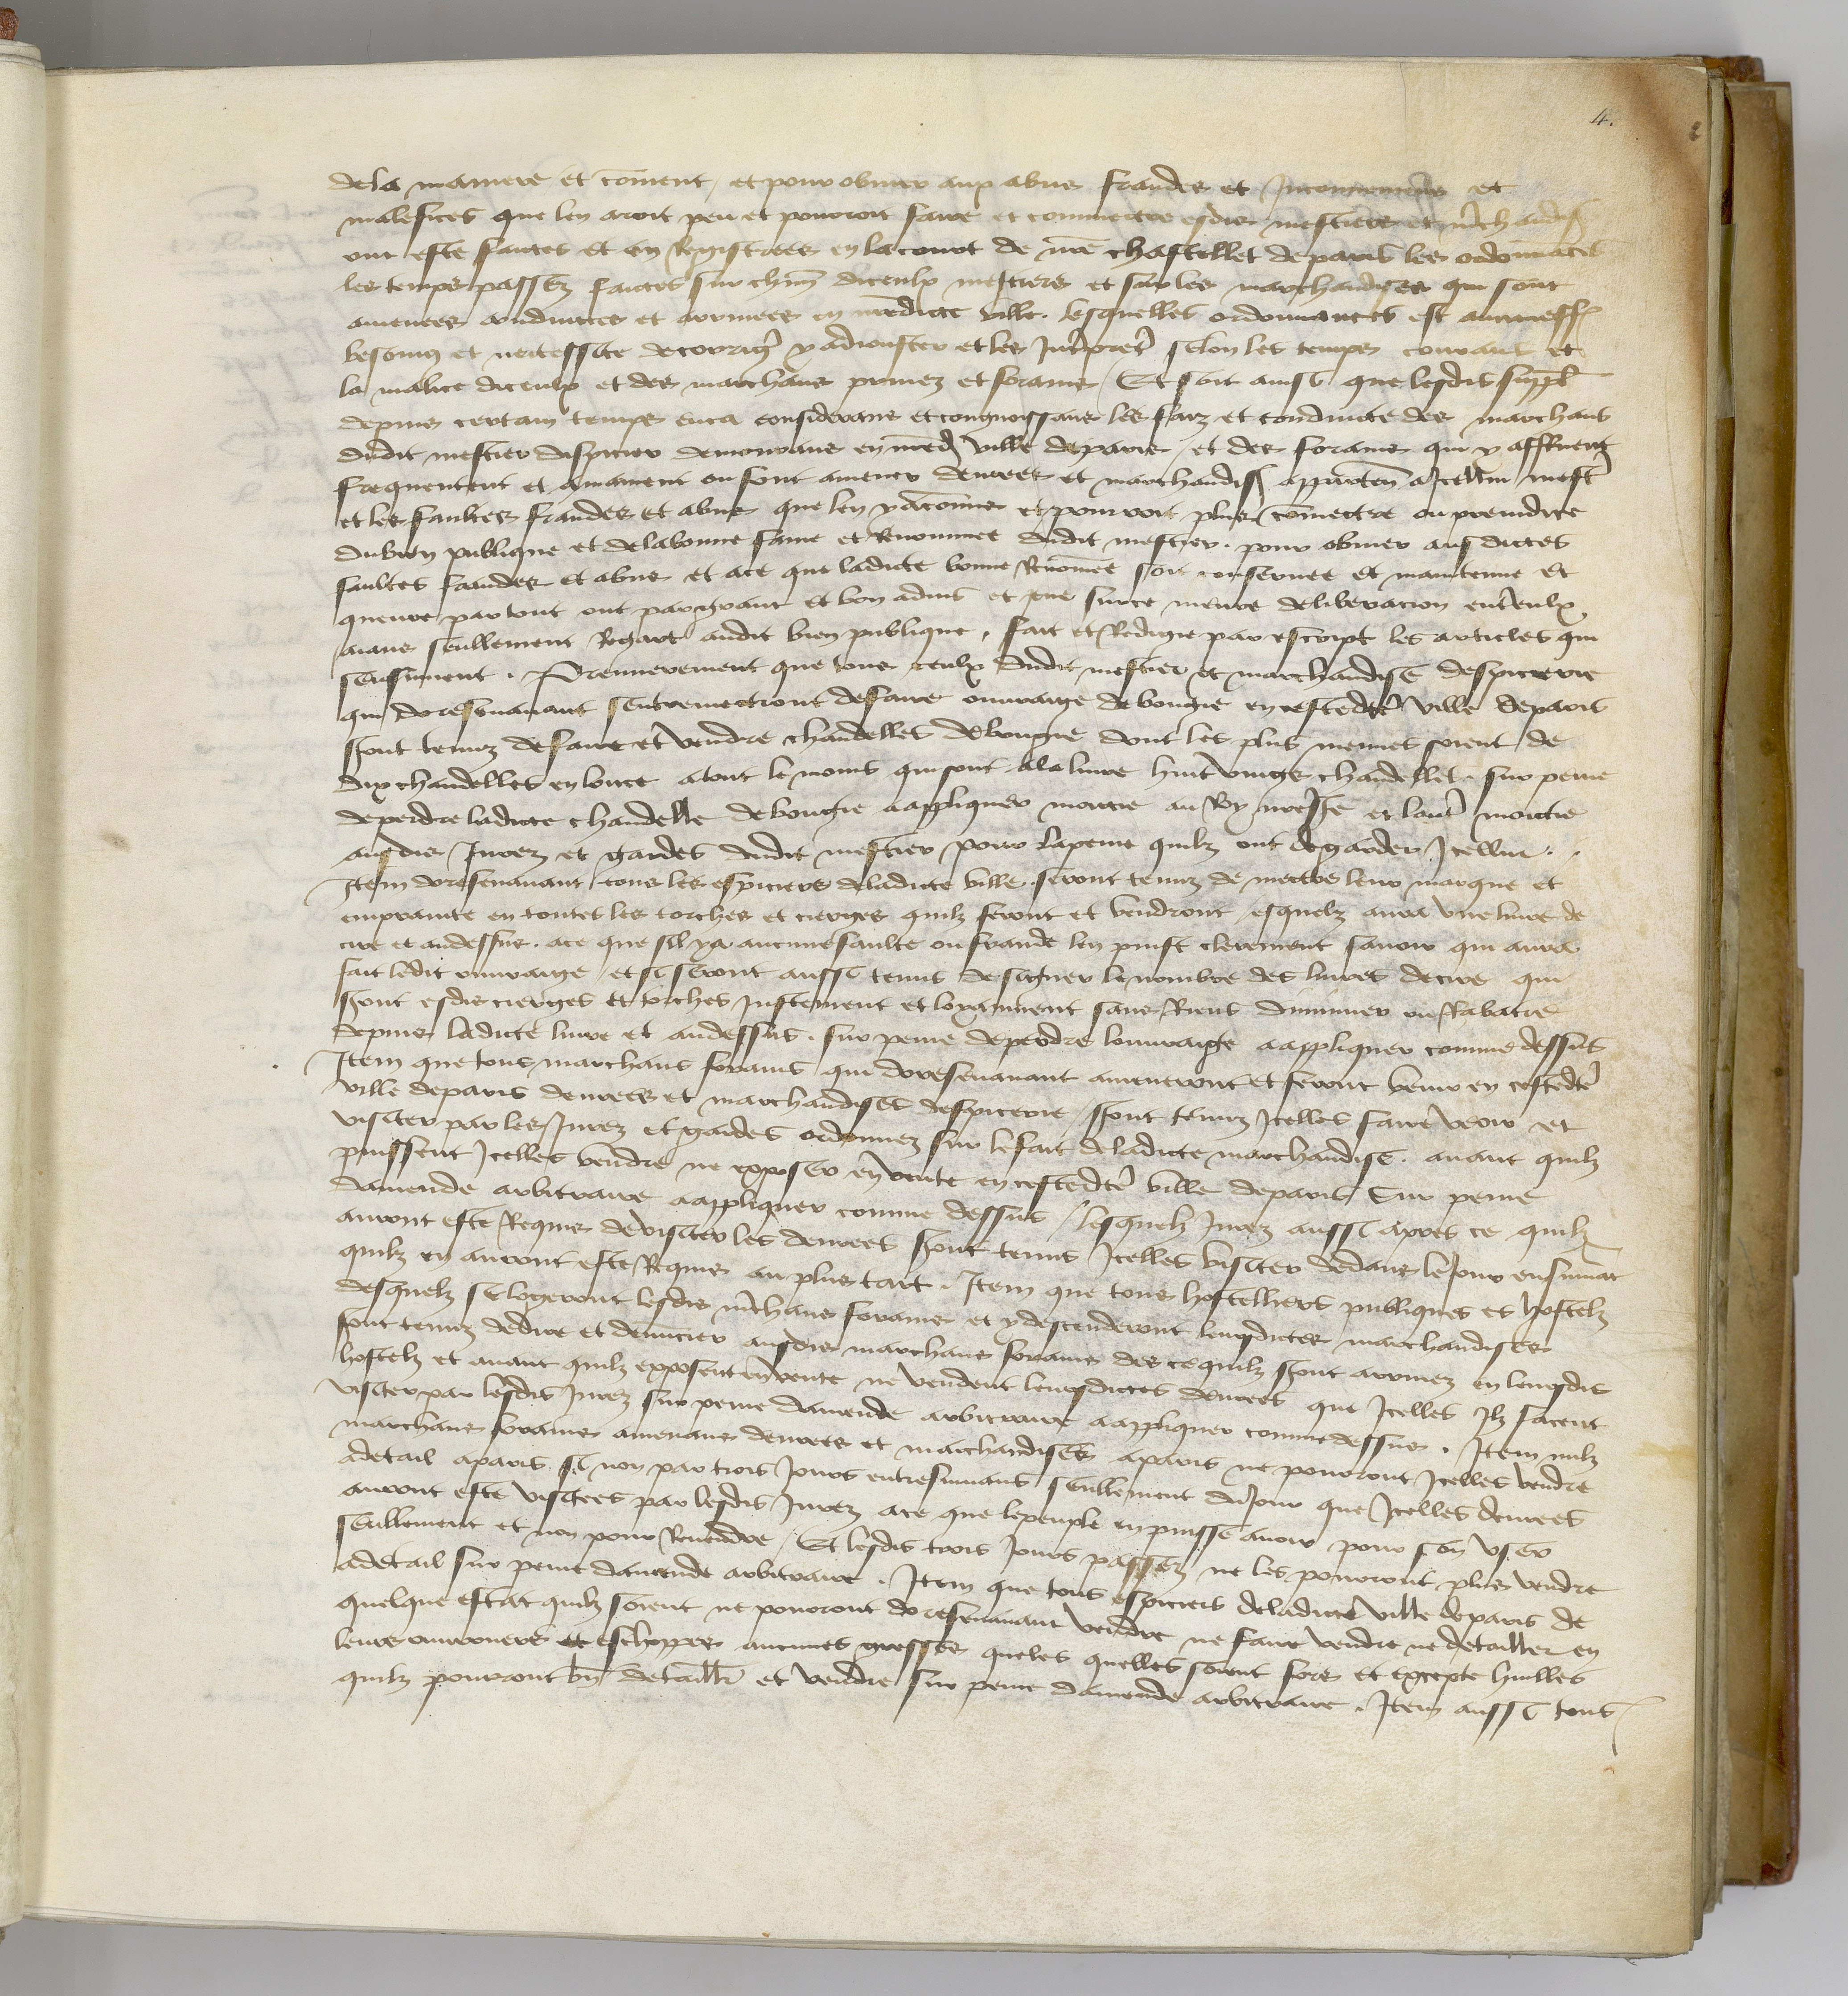 4.
dela maniere et com̄ent / et pour obvier aux abus fraudes et Inconveniens et
malefices que len avoit peu et pouvoit faire et commectre esdis mestiers et mͬchandis̃
ont este faictes et en Registrees en la court de nr̃e chastellet de paris les ordonnan̄ces
les temps passez faictes sur chūn diceulx mestiers et sur les marchandises qui sont
amenees conduictes et arrivees en nr̃edicte ville. lesquelles ordonnances est
besoing et necessite de corrig̃ y adiouster et les Int̃pret̃ selon les temps courant et
la malice diceulx et des marchans privez et forains / Et soit ainsi que lesdis supp̃l
depuis certain temps enca considerans et congnoissans les faiz et conduicte des marchans
dudit mestier despicier demourans en nr̃ed̃ ville de paris / et des forains qui y affluent
frequentent et amainent ou font amener denrees et marchandis̃ apparten̄ a Icellui mest̃
et les faultes fraudes et abus que len y a com̄is et pourroit plus com̄ectre ou preiudice
du bien publique et dela bonne fame et Renommee dudit mestier. pour obvier ausdictes
faultes fraudes et abus et ace que ladicte bonne Renom̄ee soit conservee et maintenue et
queure par tout ont par grant et bon advis et eue surce meure deliberacion entr̃eulx
aians seullement Regart audit bien publique, fait et Redigie par escript les articles qui
sensuivent. Premierement que tous ceulx dudit mestier et marchandise despicerie
qui doresenavant sentremectront defaire ouvraige de bougie en cestedt̃e ville deparis
s̃ont tenuz defaire et vendre chandelles debougie dont les plus menues soient de
dix chandelles en lonce atout le moins qui sont ala livre huit vings chandelles. sur peine
deperdre ladicte chandelle debougie aappliquer moitie au Roy nr̃es̃re et laut̃ moictie
ausdis Jurez et gardes dudit mestier pour lapeine quilz ont degarder Icellui..
Item doresenavant tous les espiciers deladicte ville. seront tenuz de mectre leur marque et
emprainte en toutes les torches et cierges quilz feront et vendront / esquelz aura une livre de
cire et audessus. ace que sil ya aucune faulte ou fraude len puist clerement savoir qui aura
fait ledit ouvraige / et si seront aussi tenus designer le nombre des livres decire qui
s̃ont esdis cierges et torches Justement et loyaument sans Riens diminuer ne Rabatre
depuis ladicte livre et audessus. sur peine deperdre louvraige aappliquer comme dessus
Item que tous marchans forains qui doresenavant ameneront et feront venir en cestedt̃e
ville deparis denrees et marchandises despicerie / s̃ont tenuz Icelles faire veoir et
visiter par les Jurez et gardes ordonnez sur lefait deladicte marchandise. avant quilz
puissent Icelles vendre ne exposer envente en cestedt̃e ville deparis Sur peine
damende arbitraire aappliquer comme dessus / lesquelz Jurez aussi apres ce quilz
auront este Requis devisiter les denrees s̃ont tenus Icelles visiter dedans leJour ensuivãt
quilz en auront este Requis au plus tart. Item que tous hostelliers publiques es hostelz
desquelz se logeront lesdis mͬchans forains et ydescenderont leursdictes marchandises
s̃ont tenuz dedire et denũcier ausdis marchans forains des cequilz s̃ont arrivez en leursdis
hostelz et avant quilz exposent envente ne vendent leursdictes denrees que Icelles Ilz facent
visiter par lesdis Jurez sur peine damende arbitraire aappliquer commedessus. Item nulz
marchans forains amenans denrees et marchandises aparis ne pourront Icelles vendre
adetail aparis. si non par trois Jours entresuivans seullement duJour que Icelles denrees
auront este visitees par lesdis Jurez ace que lepeuple en puisse avoir pour son user
seullement et non pour Revendre / Et lesdis trois Jours passez ne les pourront plus vendre
adetail sur peine damende arbitraire. Item que tous espiciers deladicte ville deparis de
quelque estat quilz soient ne pourront doresenavant vendre ne faire vendre ne detailler en
leurs ouvrouers et eschoppes aucunes gresses queles quelles soient fors et excepte huilles
quilz pourront bn̄ detaill̃ et vendre sur peine damende arbitraire. Item aussi tous